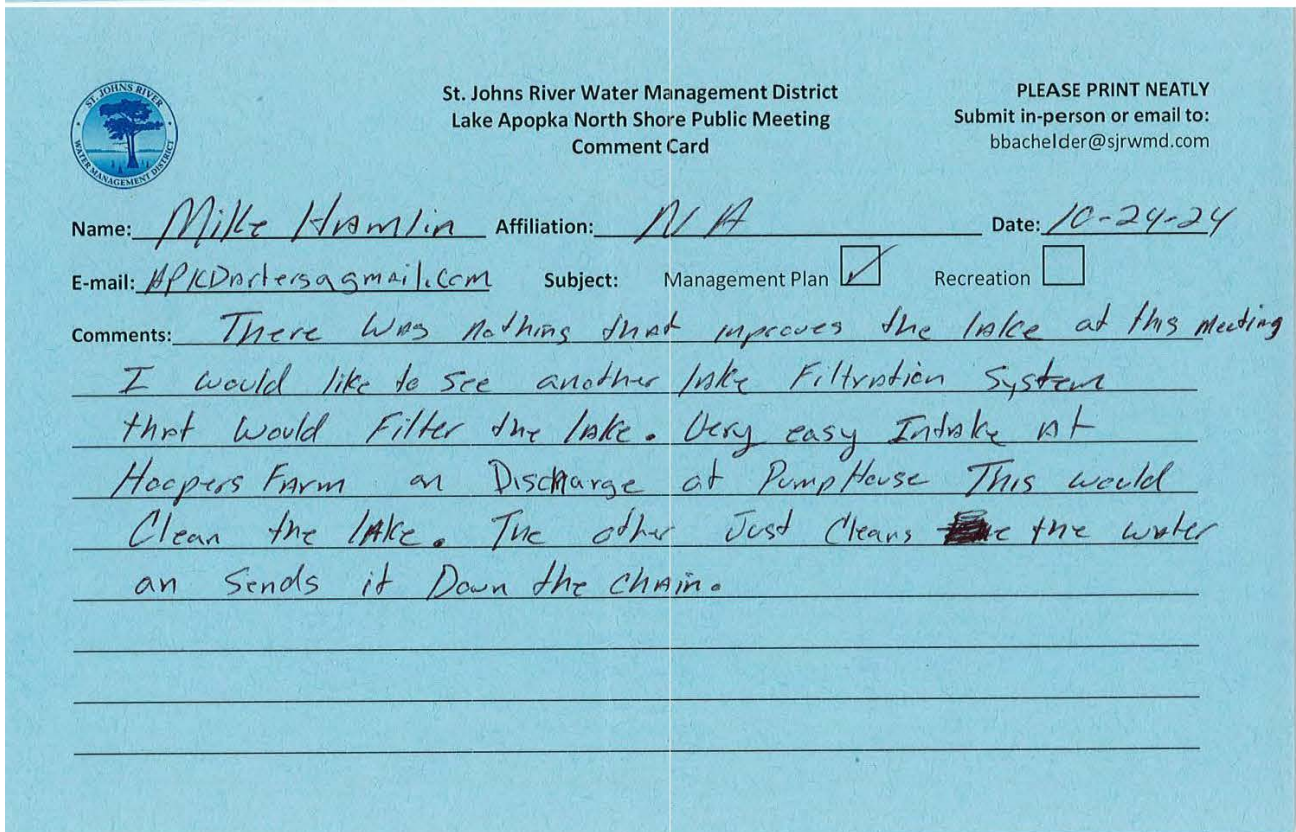 ST. JOHNS RIVER
WATER MANAGEMENT DISTRICT
St. Johns River Water Management District
Lake Apopka North Shore Public Meeting
Comment Card
PLEASE PRINT NEATLY
Submit in-person or email to:
bbachelder@sjrwmd.com
Name: Mike Hamlin Affiliation: N/A Date: 10-24-24
E-mail: Subject: Management Plan ✓ Recreation
Comments: There was nothing that inproves the lake at this meeting
I would like to see another lake Filtration System
that would Filter the lake. Very easy Intake at
Hoopers Farm an Discharge at PumpHouse This would
Clean the lake. The other Just Cleans the water
an Sends it Down the Chain.